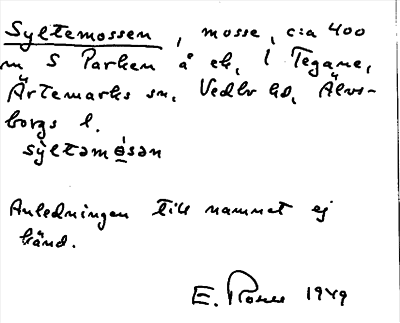 Syltemossen, mosse, c:a 400
m S Parken å ek, l Tegane,
Ärtemarks sn, Vedbo hd, Älvs-
borgs l.
sỳltəmósən
Anledningen till namnet ej
känd.
E. 1949